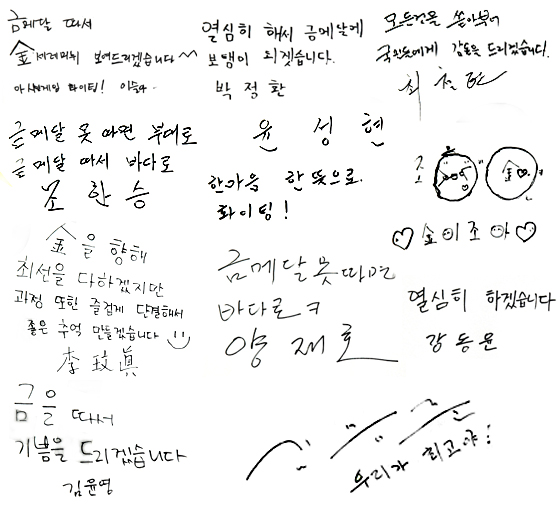 금메달 따서
金세레머니 보여드리겠습니다 ^^
아시안게임 화이팅! 이슬아
열심히 해서 금메달에
보탬이 되겠습니다.
박정환
모든것을 쏟아부어
국민들에게 감동을 드리겠습니다.
최철한
금메달 못 따면 부대로
금메달 따서 바다로
조한승
윤성현
한마음 한뜻으로.
화이팅!
조
金
♡金이 조아♡
金을 향해
최선을 다하겠지만
과정 또한 즐겁게 단결해서
좋은 추억 만들겠습니다
李玟眞
금메달 못 따면
바다로 ㅋ
양재호
열심히 하겠습니다
강동윤
금을 따서
기쁨을 드리겠습니다
김윤영
우리가 최고야!